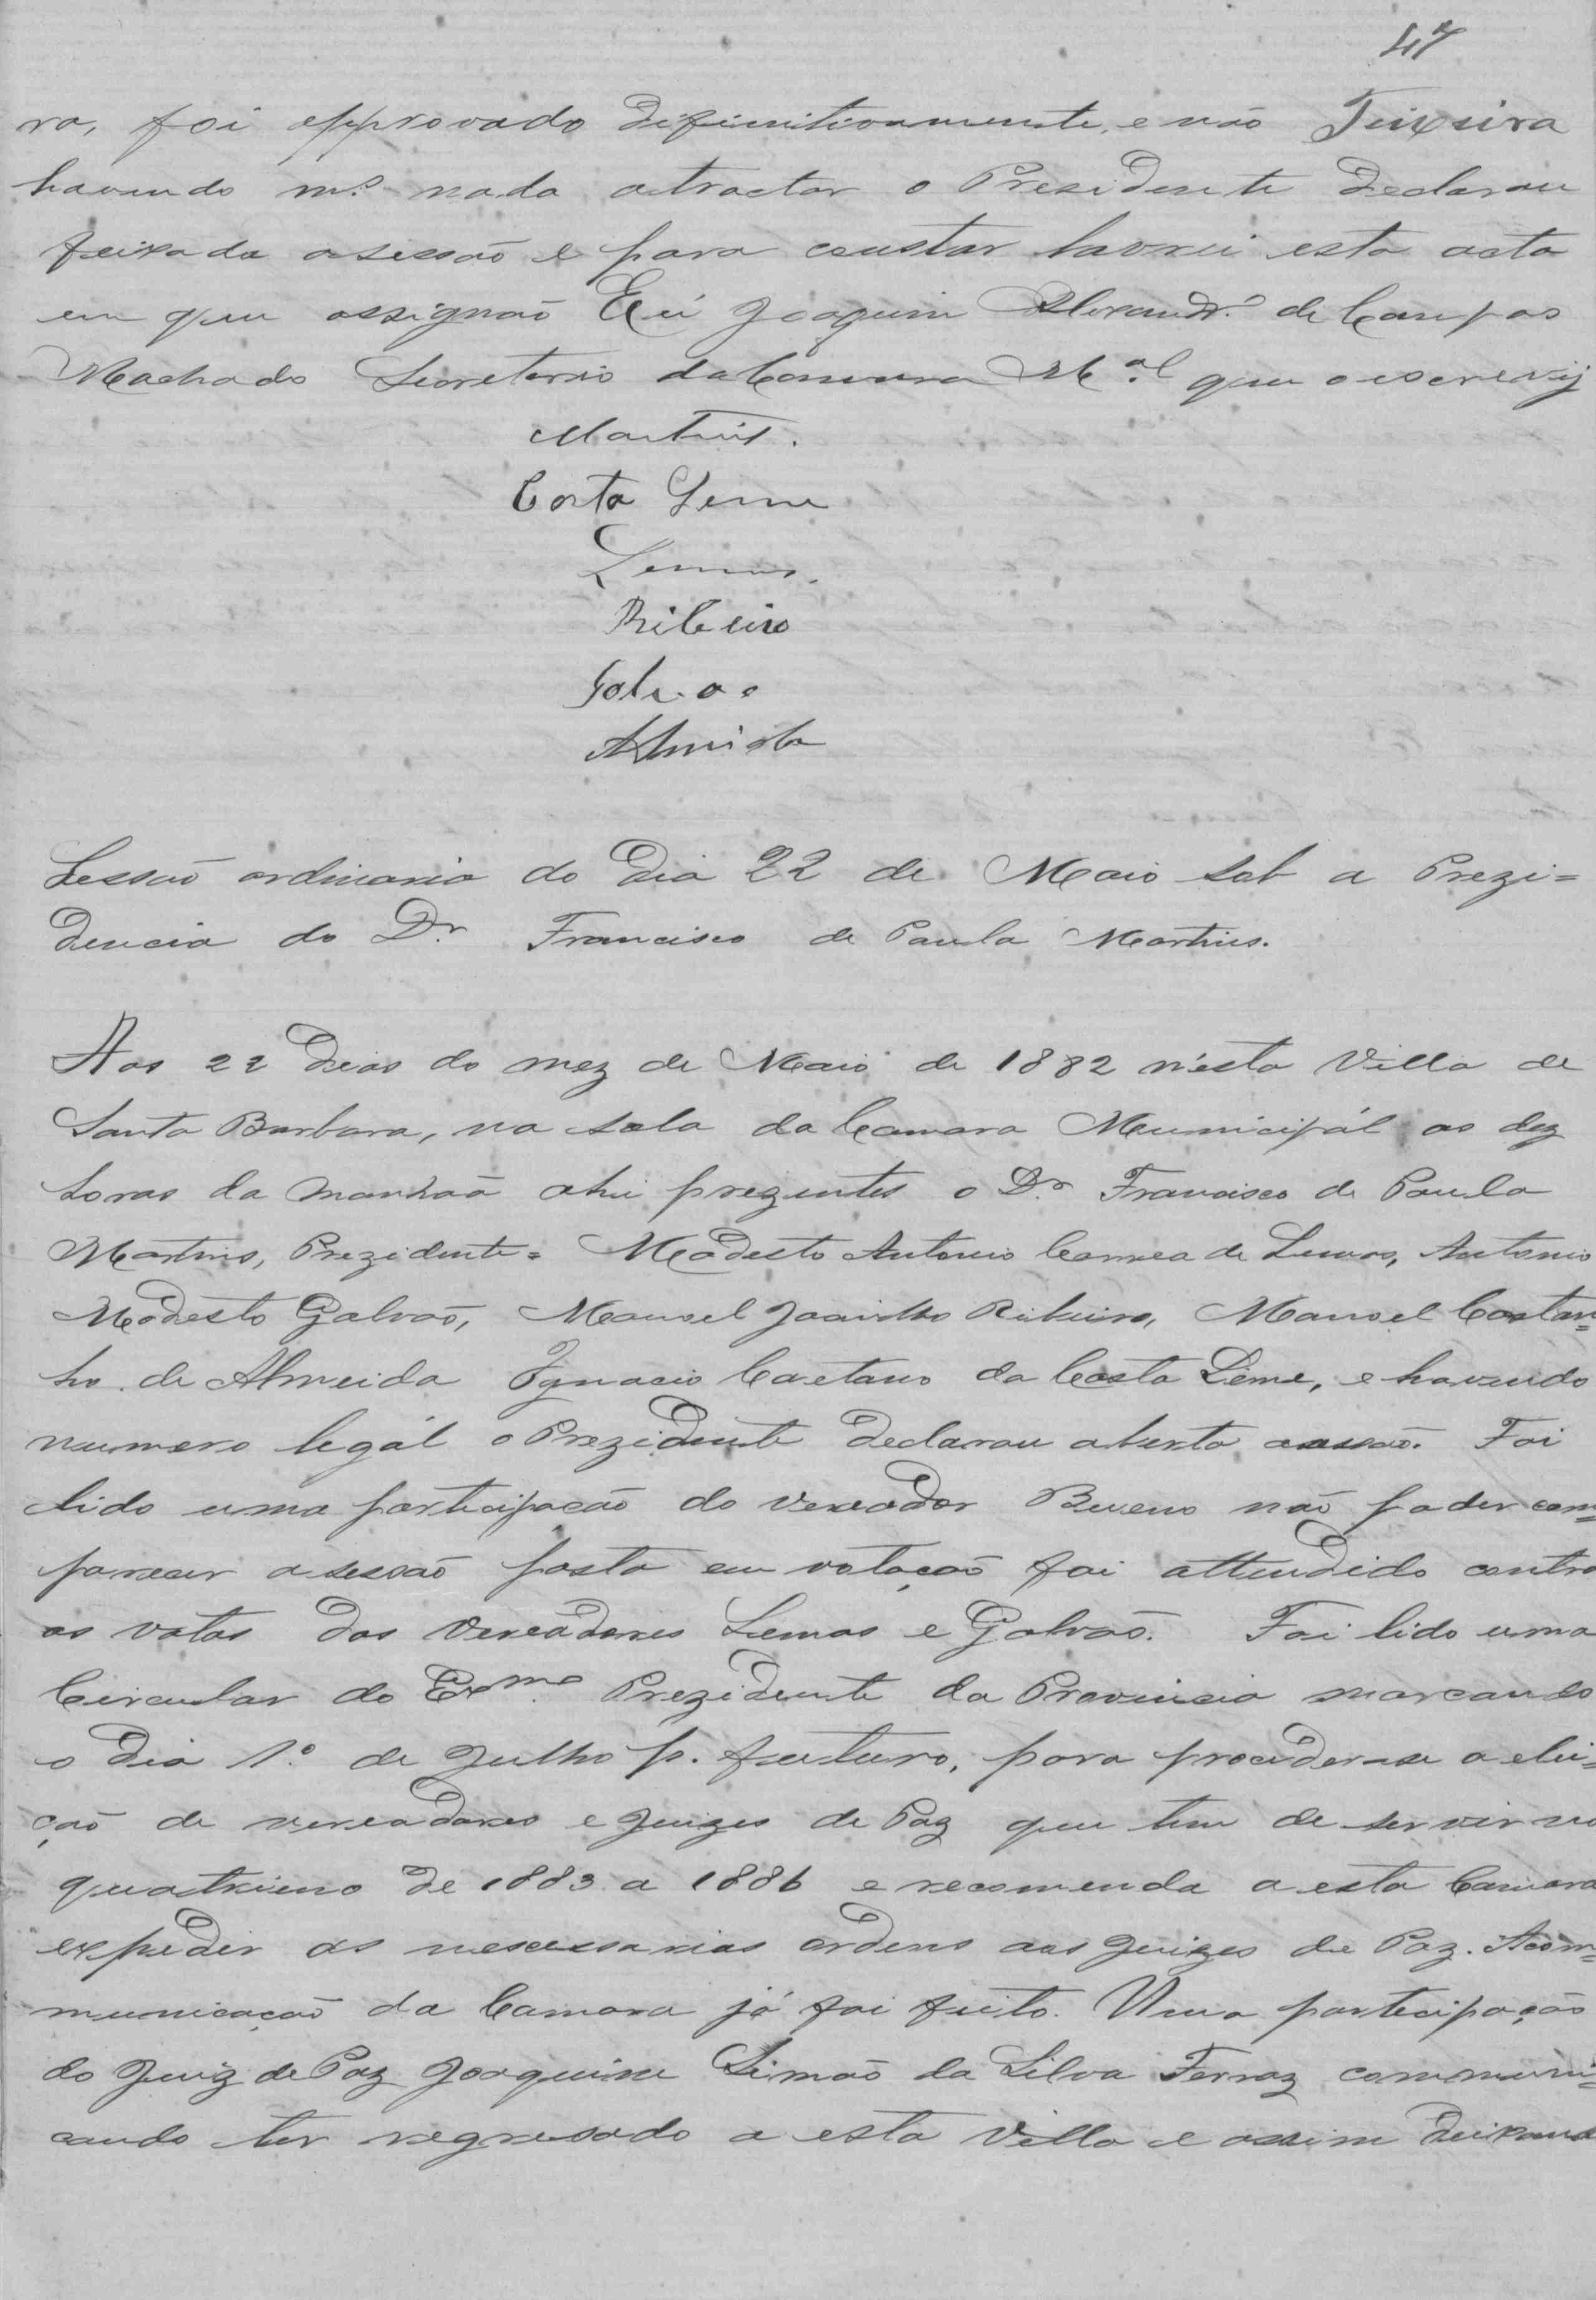 47
ra, foi approvado difinitivamente, e não Teixeira
havendo m.s nada atractar o Presidente declarou
feixada asessão e para constar lavrei esta acta
em que assignão Eu Joaquim Alexandr.e de Campos
Machado Secretario da Camara M.al que o escrevij
Martins.
Costa Leme
Lemos.
Ribeiro
Galvão
Almeida
Sessão ordinaria do dia 22 de Maio sob a Prezi=
dencia do Dr Francisco de Paula Martins.
Aos 22 dias do mez de Maio de 1882 n'esta Villa de
Santa Barbara, na sala da Camara Municipál as dez
horas da manhaã ahi prezentes o Dr Francisco de Paula
Martins, Prezidente= Modesto Antonio Correa de Lemos, Antonio
Modesto Galvão, Manoel Jacintho Ribeiro, Manoel Castan=
ho de Almeida Ignacio Caetano da Costa Leme, e havendo
numero legál o Prezidente declarou aberta asessão. Foi
lido uma participação do vereador Bueno não poder com=
parecer a sessão posta em votação foi attendido contra
os votos dos Vereadores Lemos e Galvão. Foi lido uma
Circular do Exmo. Prezidente da Provincia marcando
o dia 1.o de Julho p. futuro, para procederse a elei=
ção de vereadores e Juizes de Paz que tem de servir no
quatrieno de 1883 a 1886 e recomenda a esta Camara
expedir as nescessarias ordens aos Juizes de Paz. Acom=
municação da Camara já foi feito. Uma participação
do Juiz de Paz Joaquim Simão da Silva Ferraz communi=
cando ter regresado a esta Villa e assim deixando